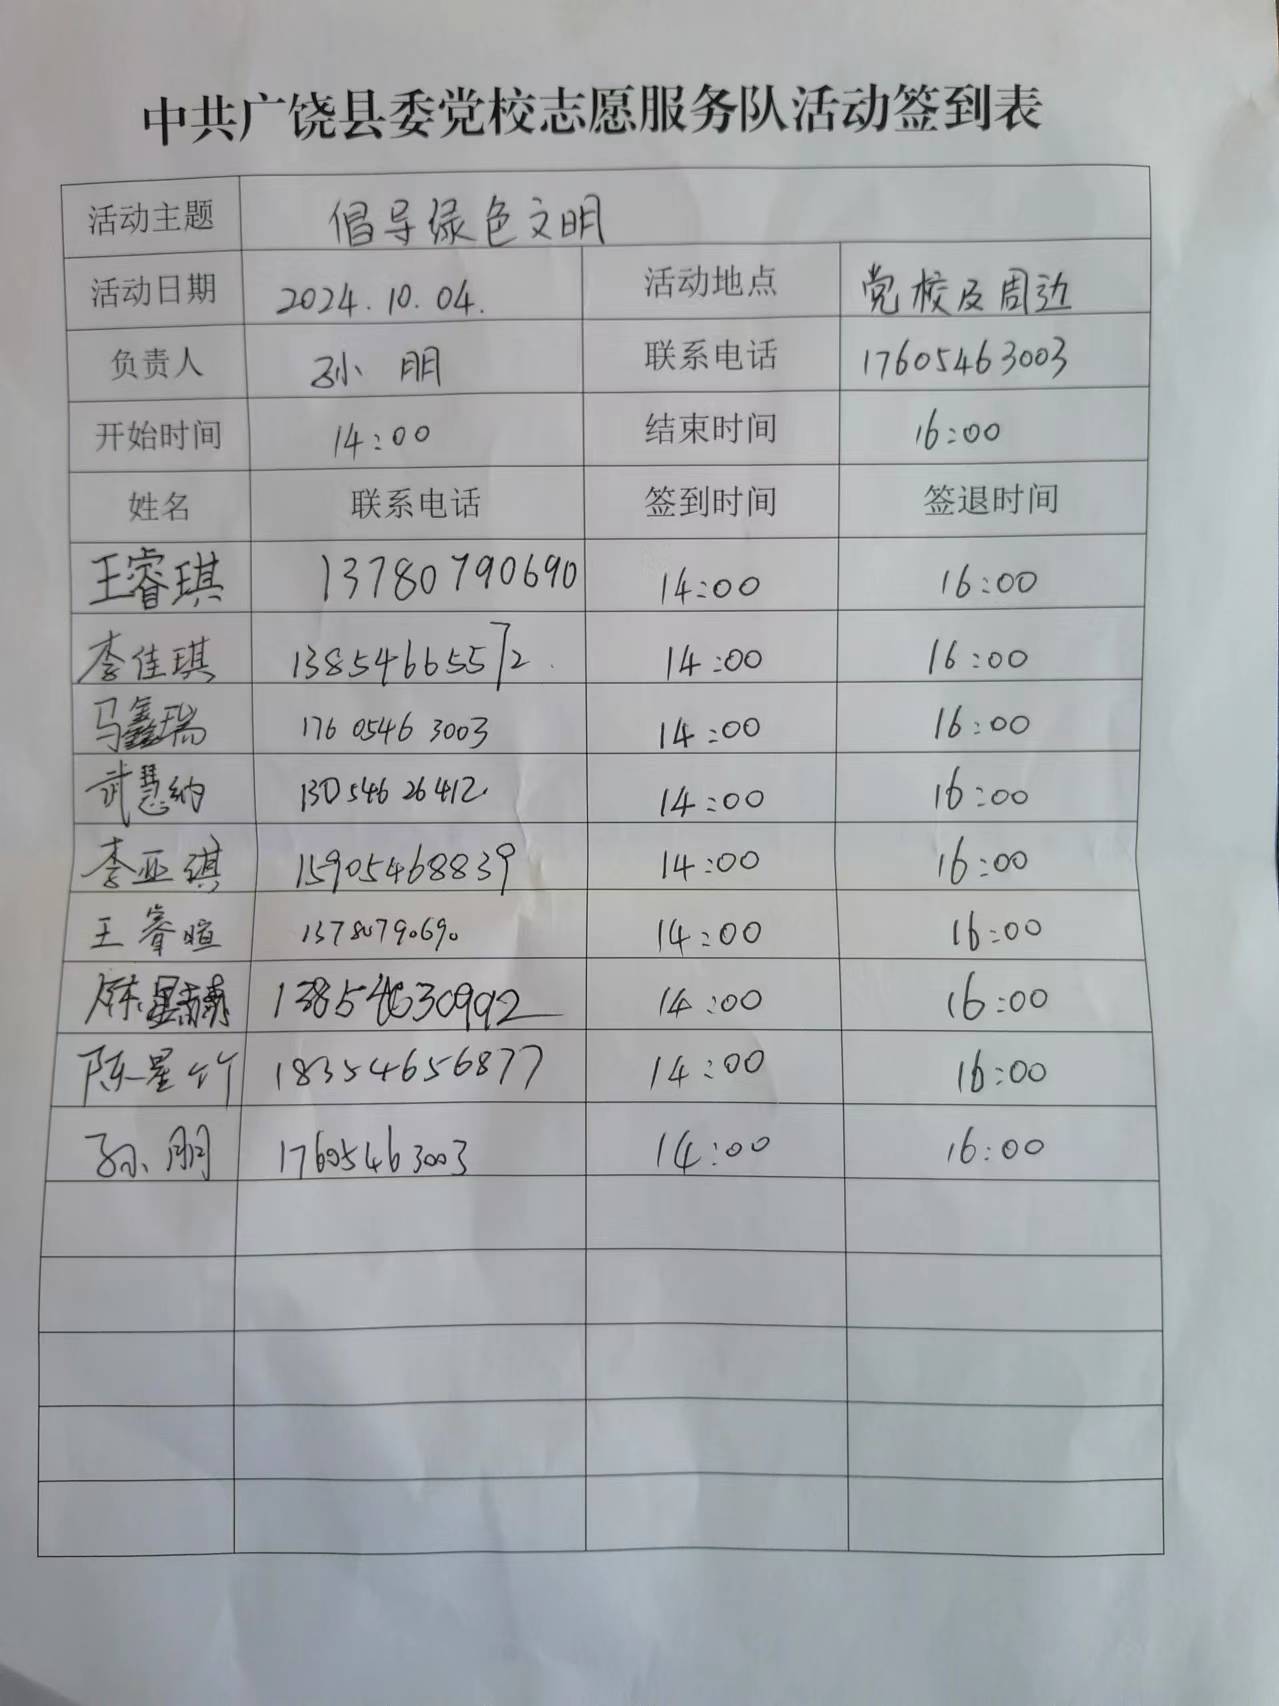 中共广饶县委党校志愿服务队活动签到表
活动主题 倡导绿色文明
活动日期 2024.10.04. 活动地点 党校及周边
负责人 孙朋 联系电话 17605463003
开始时间 14:00 结束时间 16:00
姓名 联系电话 签到时间 签退时间
王睿琪 13780790690 14:00 16:00
李佳琪 13854665572. 14:00 16:00
马鑫瑞 17605463003 14:00 16:00
武慧纳 14:00 16:00
李亚琪 15905468839 14:00 16:00
王睿暄 1378079069 14:00 16:00
13854630992 14:00 16:00
陈星竹 18354656877 14:00 16:00
孙朋 17605463003 14:00 16:00